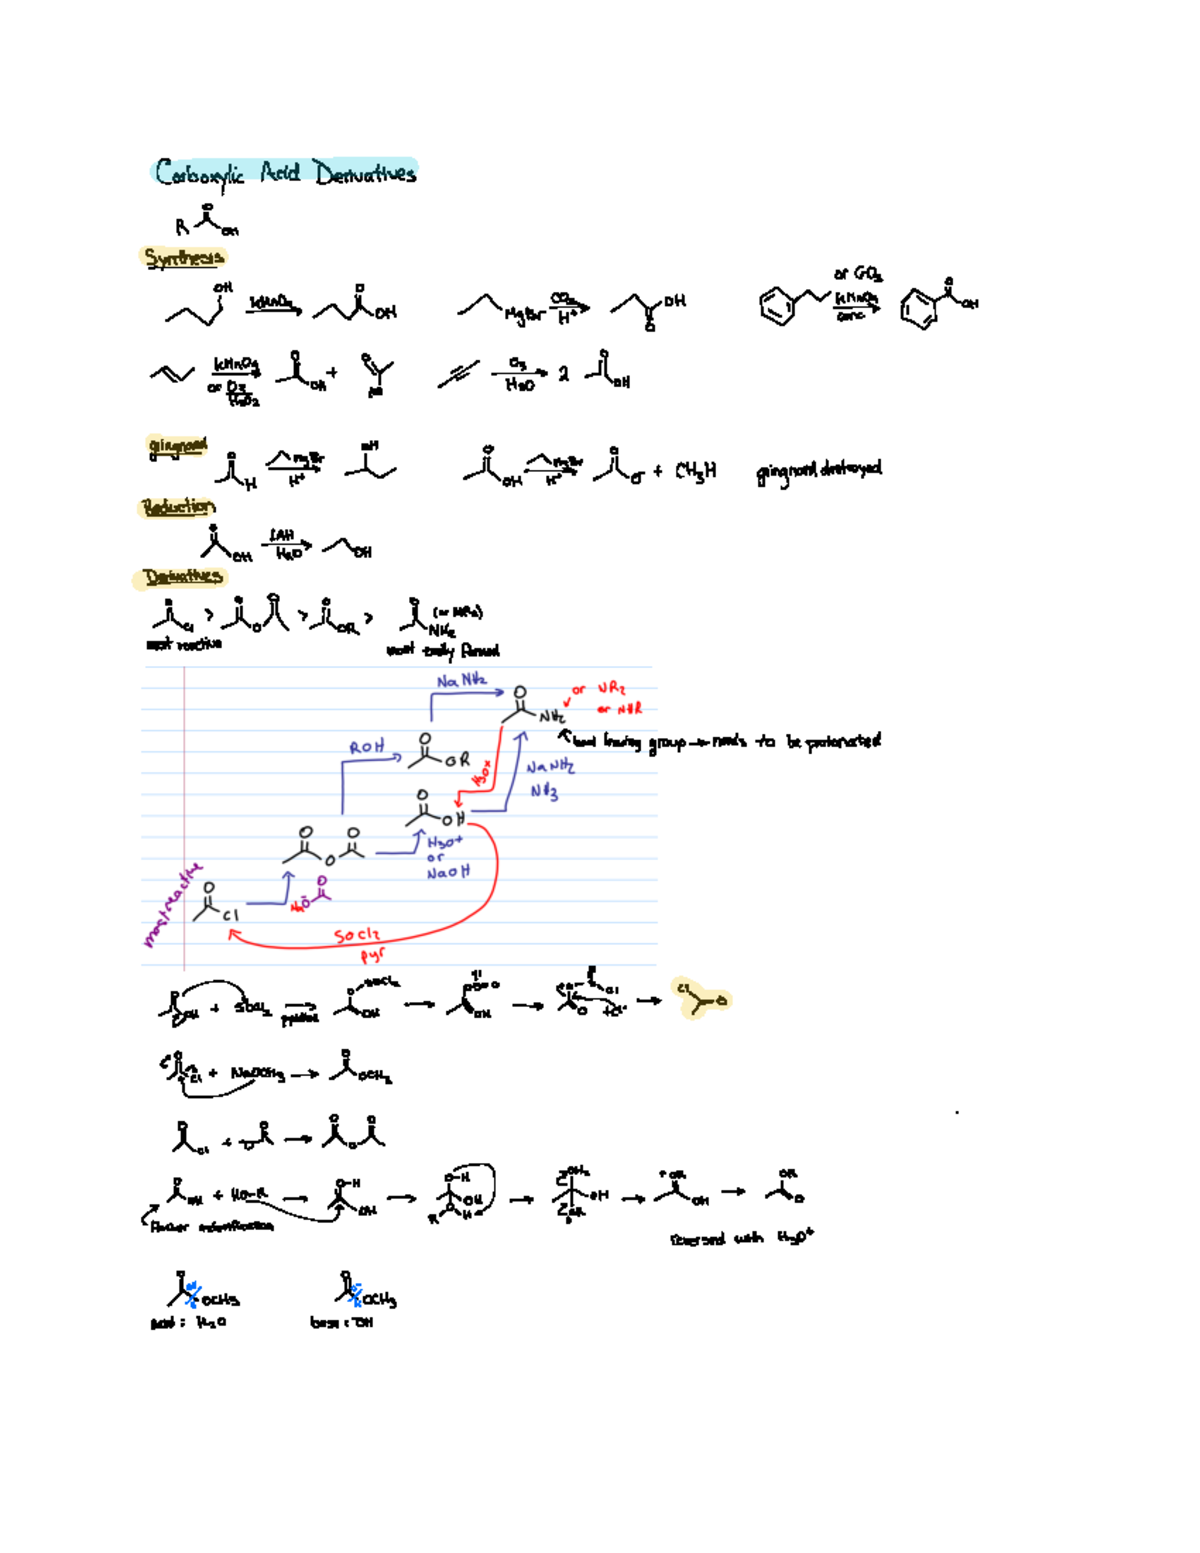 Carboxylic Acid Derivatives
R O OH
Synthesis
OH KMnO4 O OH MgBr CO2 H+ OH O or CO3 KMnO4 conc. O OH
KMnO4 or O3 H2O2 O OH + O H O3 H2O 2 O OH
gringnard
O H MgBr H+ OH O OH MgBr H+ O O- + CH3H gringnard destroyed
Reduction
O OH LAH H2O OH
Derivatives
O Cl > O O O > O OR > O NH2 (or NR2)
most reactive most easily formed
NaNH2 O NH2 or NR2
or NHR
bad leaving group → needs to be protonated
ROH O OR H3O+ NaNH2
NH3
O OH
O O O H3O+
or
NaOH
most reactive O Cl O O
SOCl2
pyr
O OH + SOCl2 pyridine O SOCl2 OH OH Cl O
O Cl + NaOCH3 O OCH3
O Cl + O O O O
O OH + HO-R O-H OH O-H OH R O H OH2 OH OR + OR OH OR O
Fischer esterification
reversed with H3O+
O OCH3 O OCH3
acid: H2O base: OH